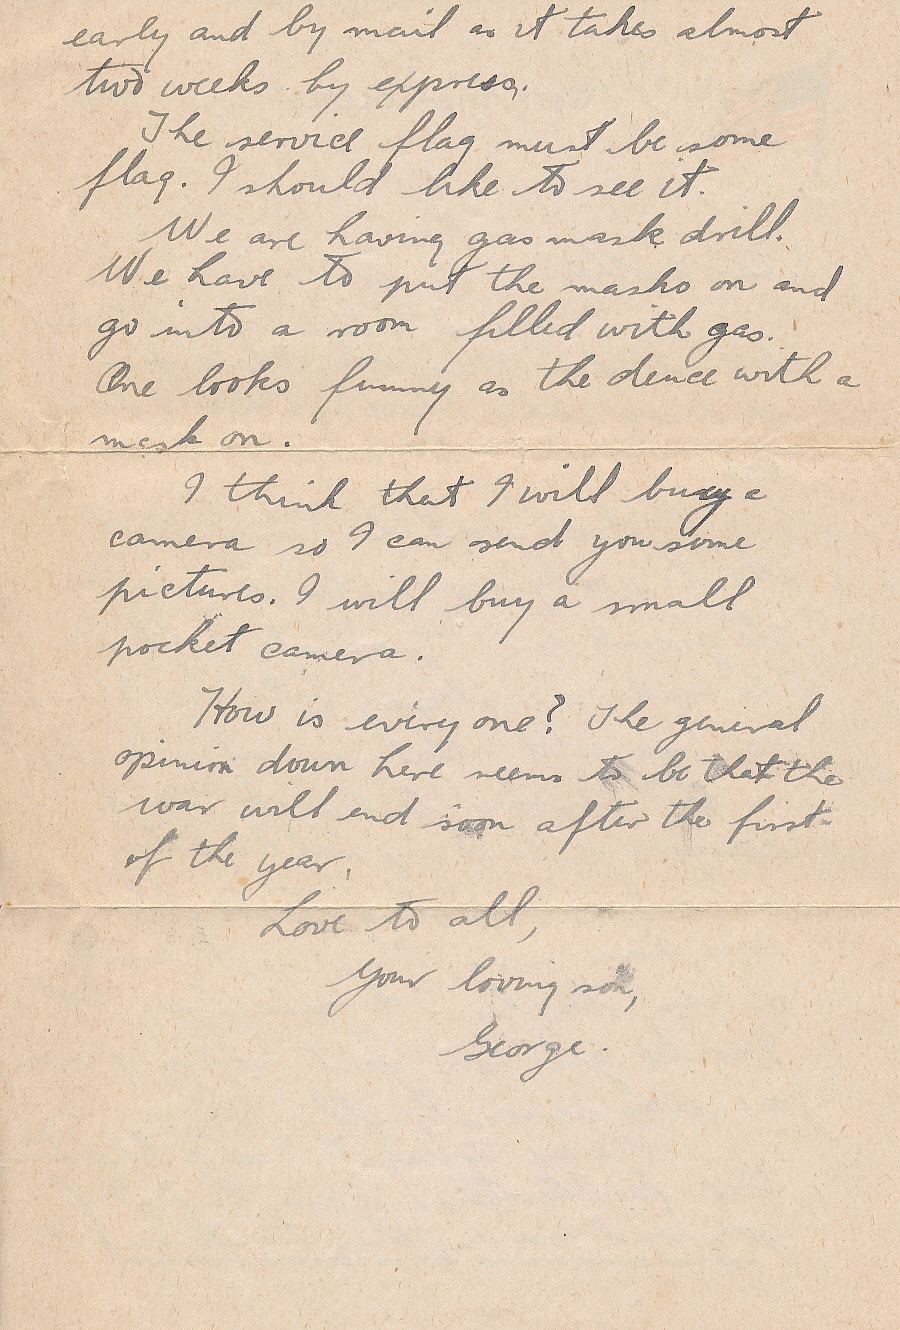 early and by mail as it takes almost
two weeks by express.
The service flag must be some
flag. I should like to see it.
We are having gas mask drill.
We have to put the masks on and
go into a room filled with gas.
One looks funny as the deuce with a
mask on.
I think that I will buy a
camera so I can send you some
pictures. I will buy a small
pocket camera.
How is everyone? The general
opinion down here seems to be that the
war will end soon after the first
of the year.
Love to all,
Your loving son,
George.